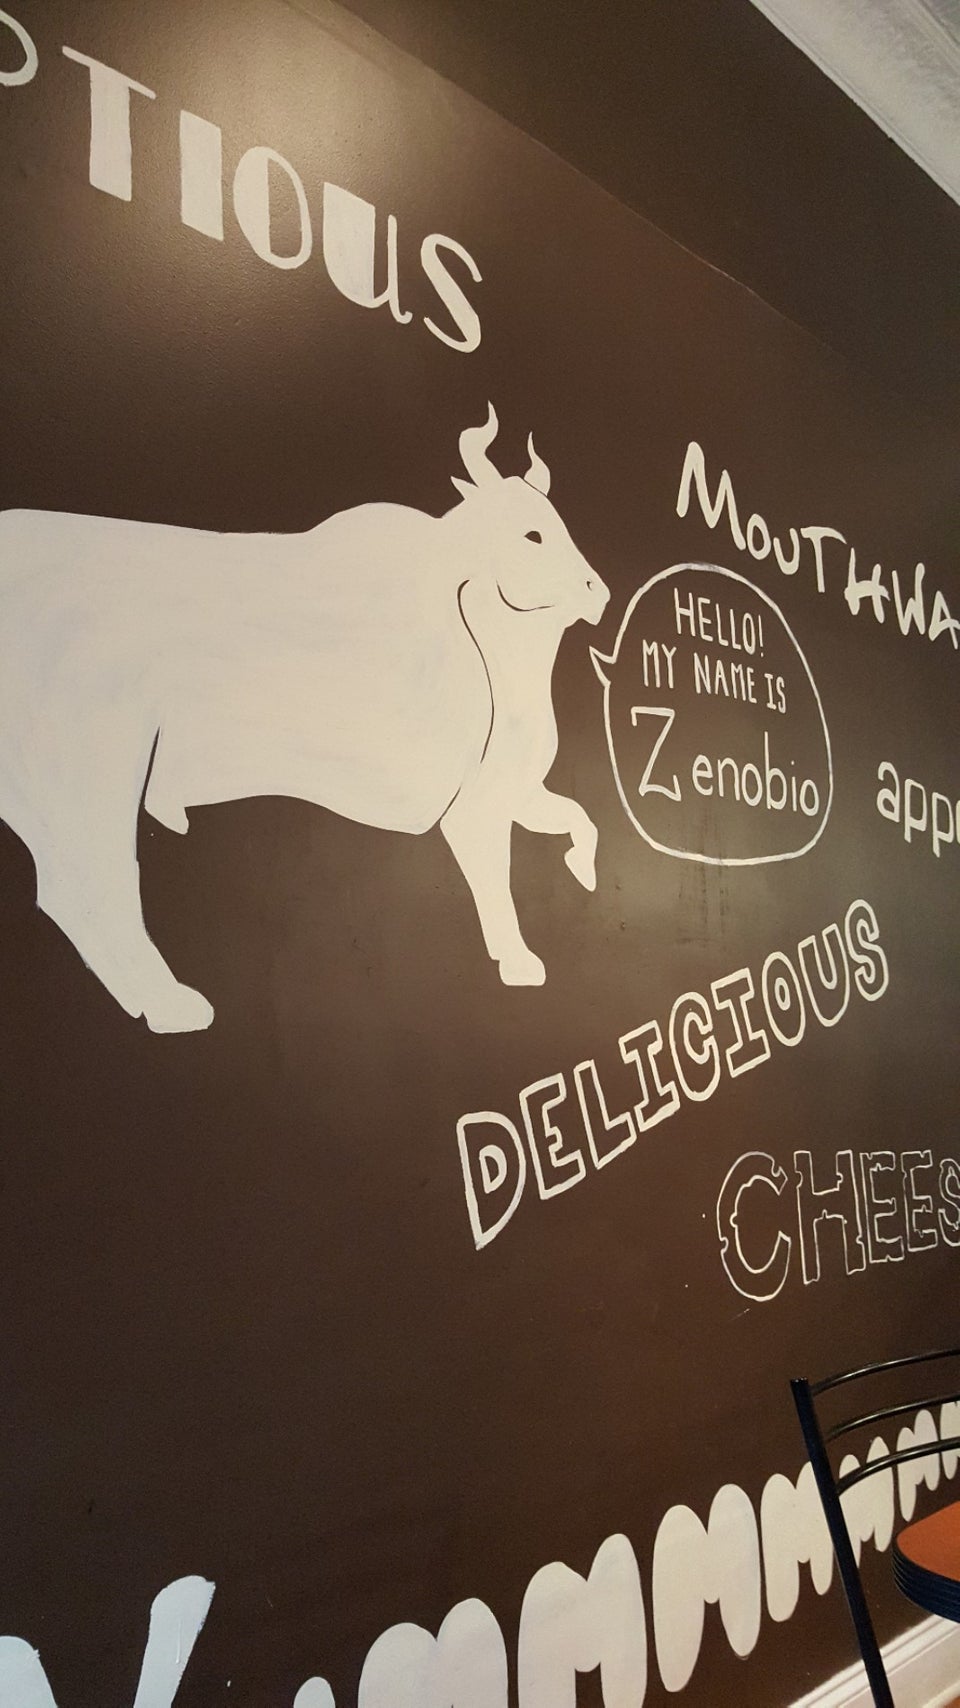 PTIOUS
MOUTHWA
HELLO!
MY NAME IS
Zenobio
app
DELICIOUS
CHEES